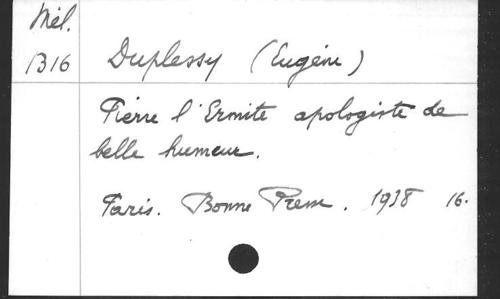 Mél.
B16 Duplessy (Eugène)
Pierre l'Ermite apologiste de
belle humeur.
Paris. Bonne Presse. 1938 16.